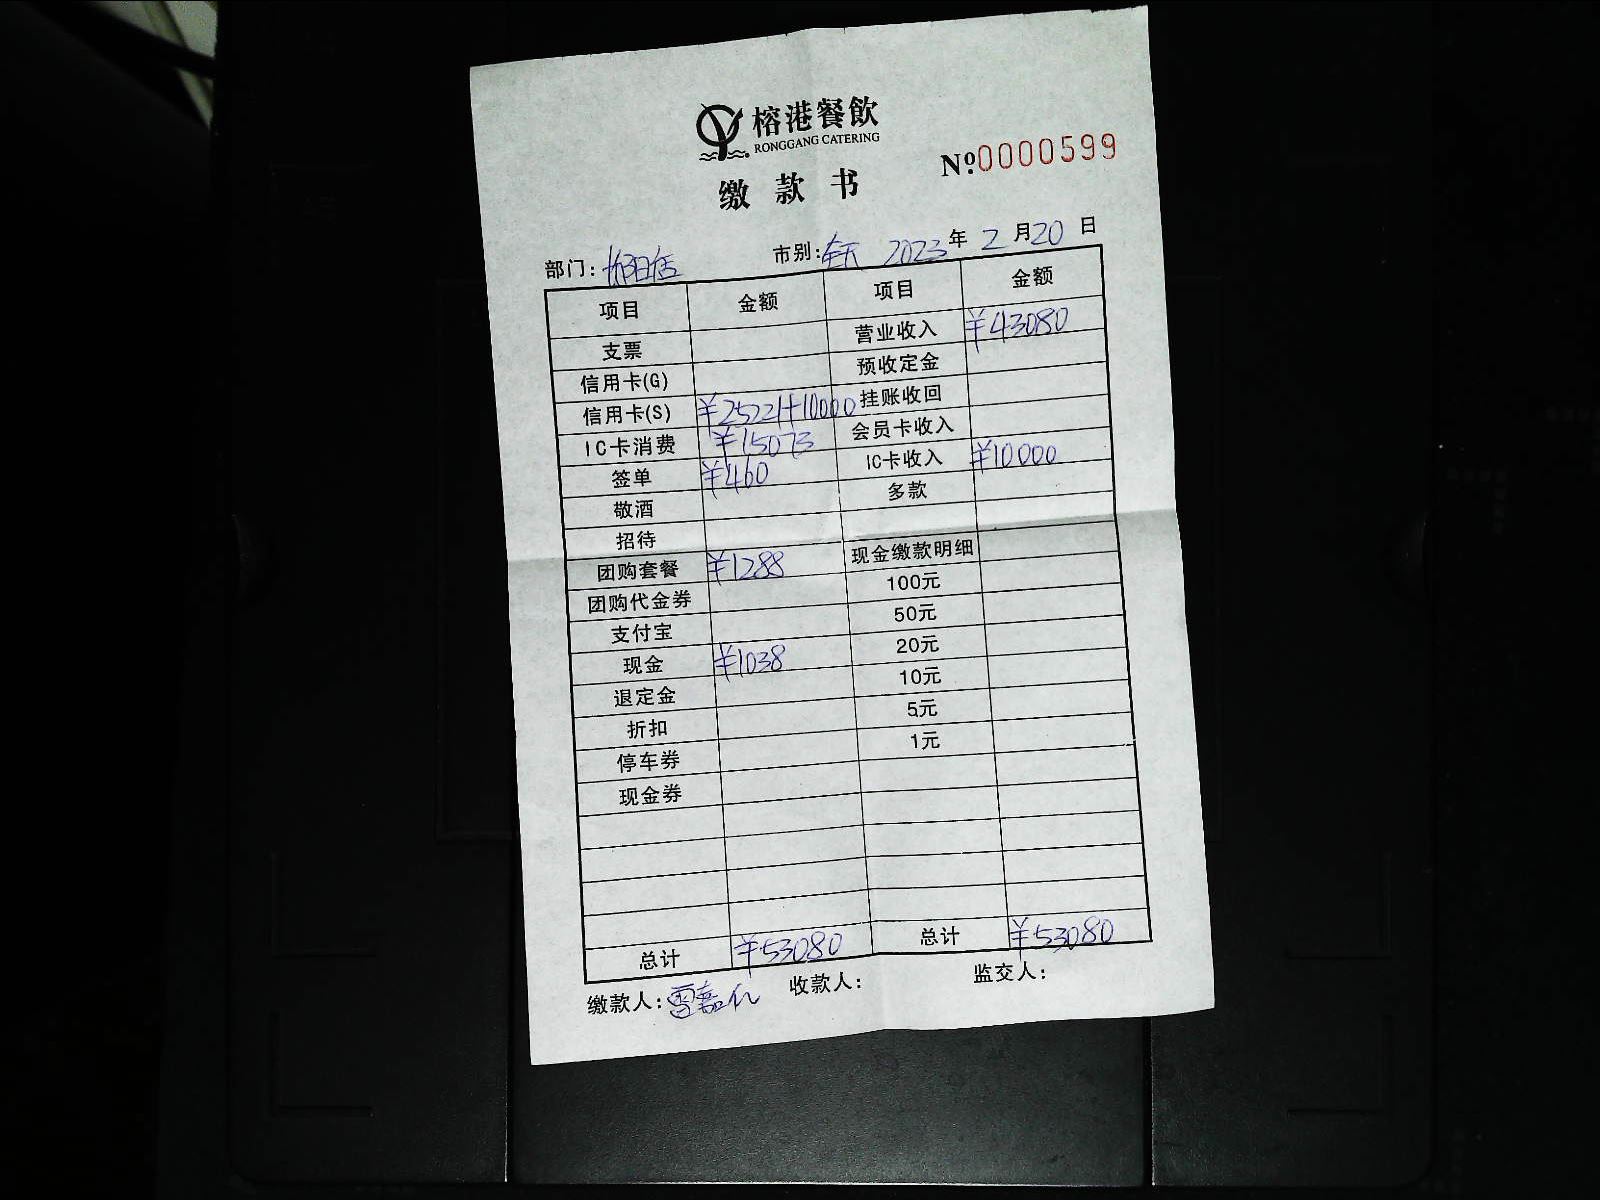 榕港餐飲
RONGGANG CATERING
№0000599
缴款书
部门: 市别:全天 2023年2月20日
项目 金额 项目 金额
支票 营业收入 ¥43080
信用卡(G) 预收定金
信用卡(S) ¥25221+10000 挂账收回
IC卡消费 ¥15073 会员卡收入
签单 ¥460 IC卡收入 ¥10000
敬酒 多款
招待
团购套餐 ¥1288 现金缴款明细
团购代金券 100元
支付宝 50元
现金 ¥1038 20元
退定金 10元
折扣 5元
停车券 1元
现金券
总计 ¥53080 总计 ¥53080
缴款人:雷嘉 收款人: 监交人: